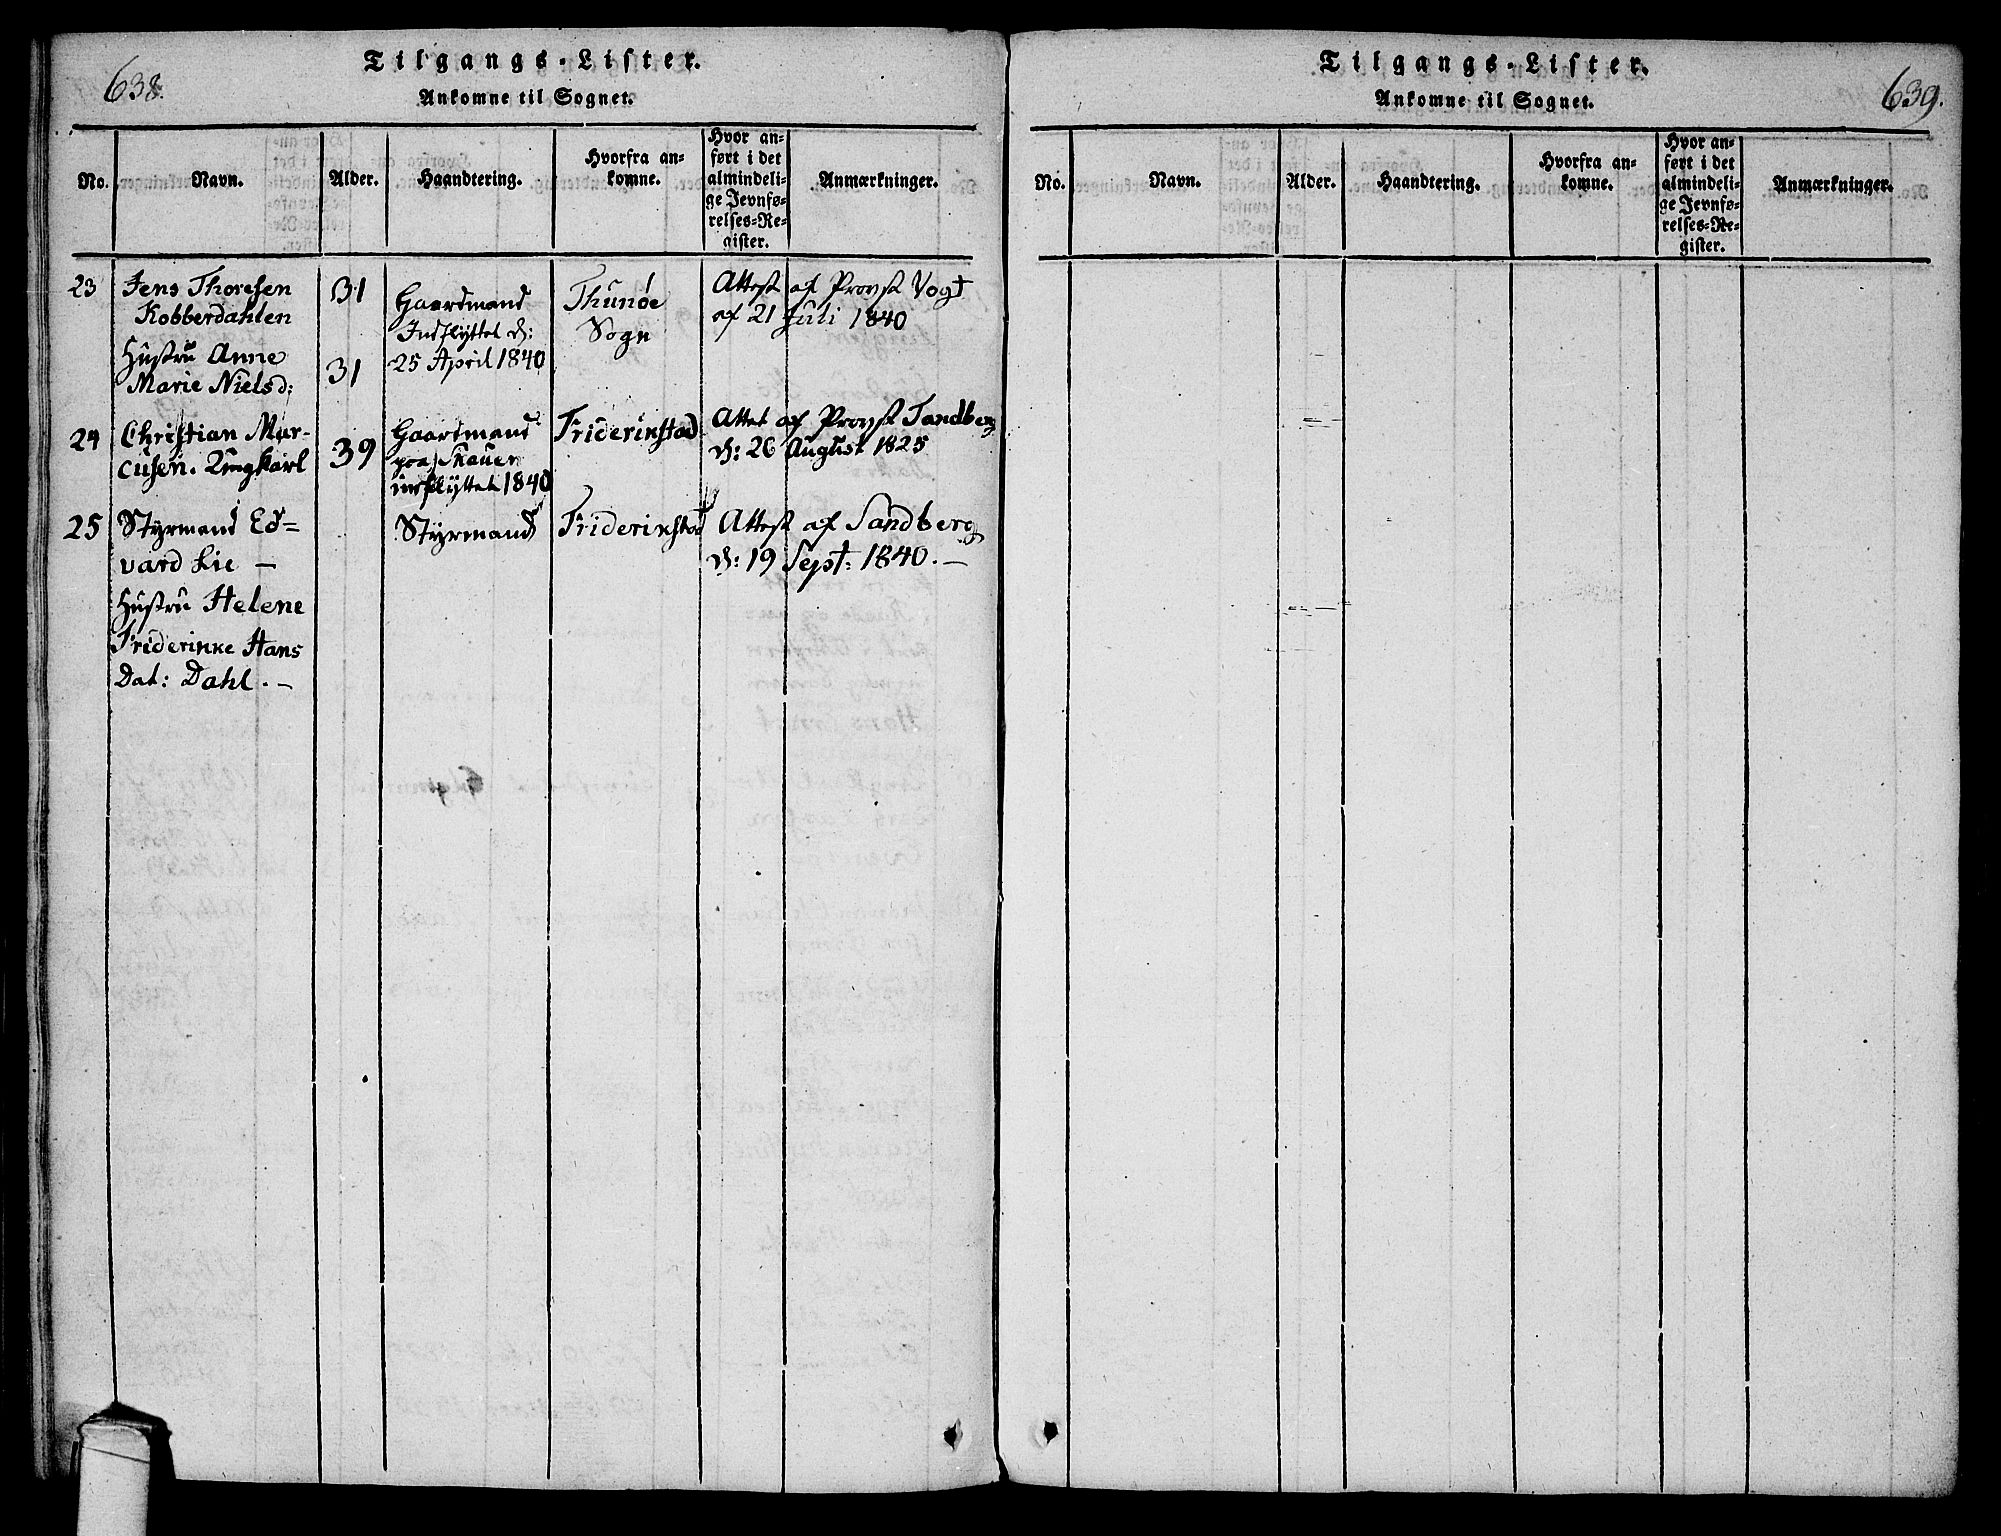 638.
Tilgangs-Lister.
Ankomne til Sognet.
No.
Navn.
Alder.
Haandtering.
Hvorfra an-
komne.
Hvor an-
ført i det
almindeli-
ge Jevnfø-
relses-Re-
gister.
Anmærkninger.
23
Jens Thoresen
Kobberdahlen
Hustru Anne
Marie Nielsd:
31
31
Gaardmand
Indflyttet d:
25 April 1840
Thunøe
Sogn
Attest af Provst Vogt
af 21 Juli 1840
24
Christian Mar-
cusen. Ungkarl
39
Gaardmand
paa Skauen
indflyttet 1840
Friderikstad
Attet af Provst Sandberg
d: 26 August 1825
25
Styrmand Ed-
vard Lie —
Hustru Helene
Friderikke Hans
Dat: Dahl. —
Styrmand
Friderikstad
Attest af Sandberg
d: 19 Sept: 1840. —
639.
Tilgangs-Lister.
Ankomne til Sognet.
No.
Navn.
Alder.
Haandtering.
Hvorfra an-
komne.
Hvor an-
ført i det
almindeli-
ge Jevnfø-
relses-Re-
gister.
Anmærkninger.